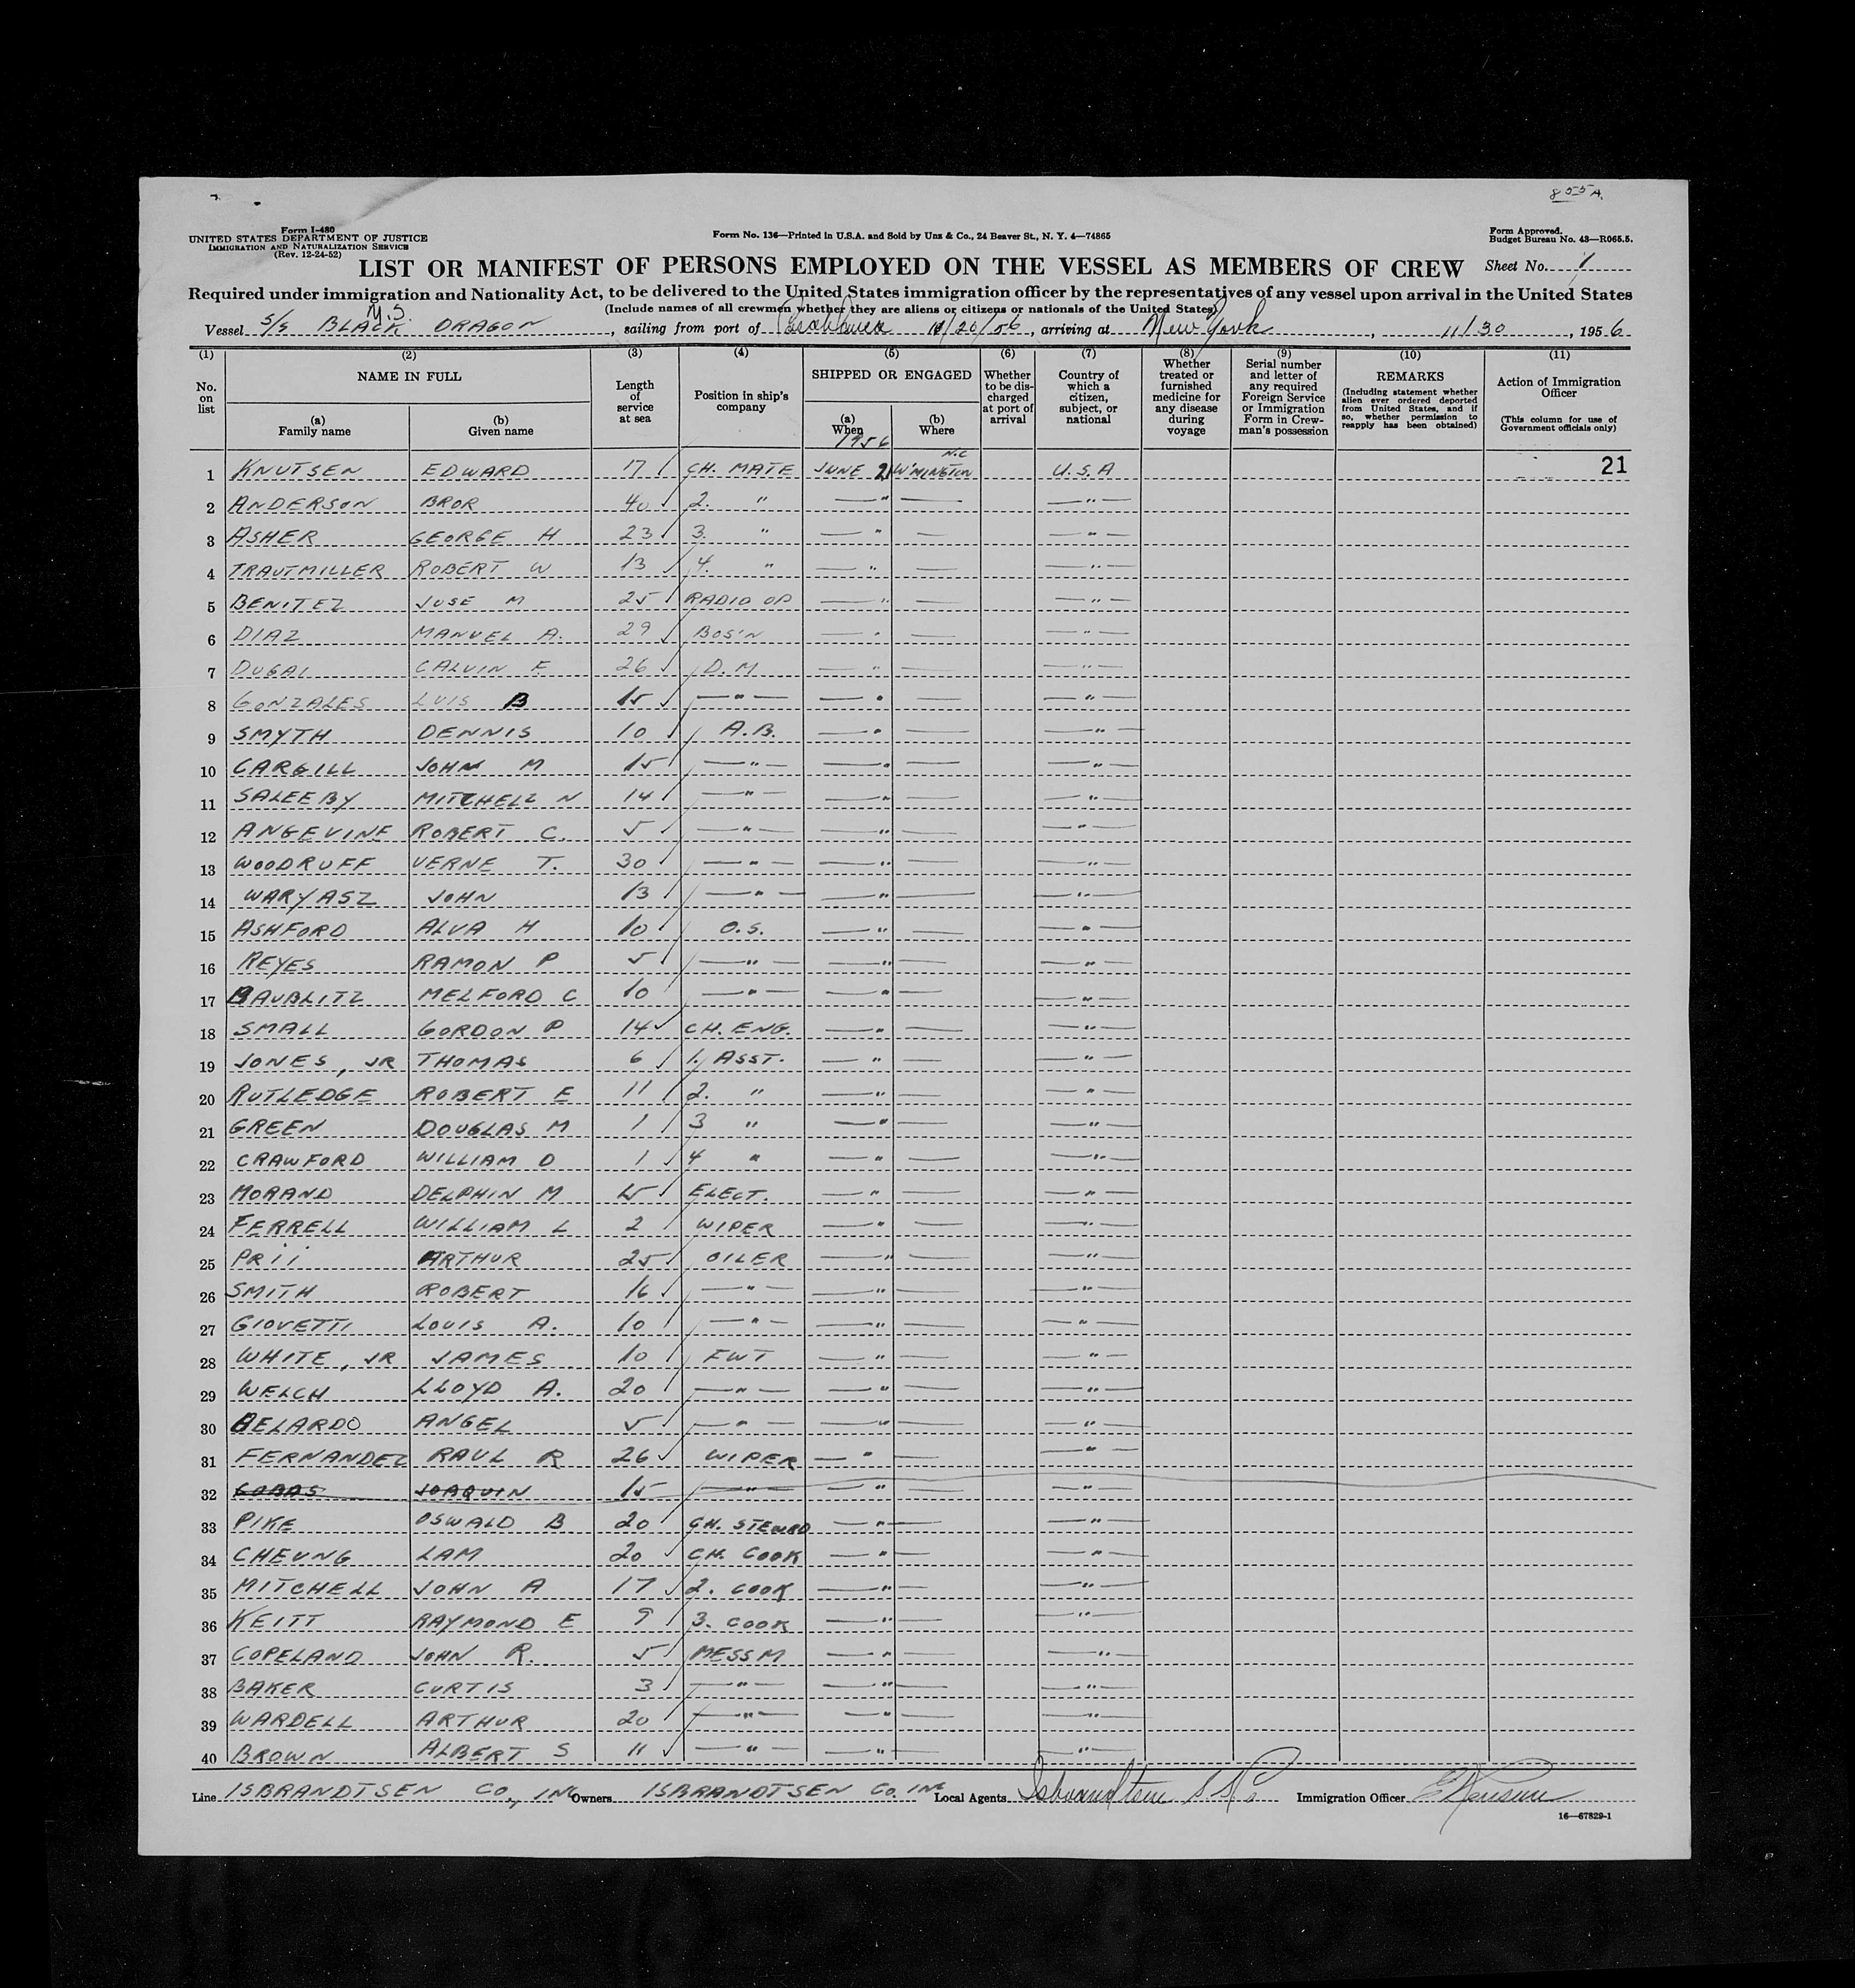 855A.
Form I-480
UNITED STATES DEPARTMENT OF JUSTICE
IMMIGRATION AND NATURALIZATION SERVICE
(Rev. 12-24-52)
Form No. 136—Printed in U.S.A. and Sold by Unz & Co., 24 Beaver St., N. Y. 4—74865
Form Approved.
Budget Bureau No. 43—R065.5.
LIST OR MANIFEST OF PERSONS EMPLOYED ON THE VESSEL AS MEMBERS OF CREW Sheet No. 1
Required under immigration and Nationality Act, to be delivered to the United States immigration officer by the representatives of any vessel upon arrival in the United States
(Include names of all crewmen whether they are aliens or citizens or nationals of the United States)
Vessel S/S BLACK DRAGON, sailing from port of Casablanca 11/20/56, arriving at New York, 11/30, 1956
(1) (2) (3) (4) (5) (6) (7) (8) (9) (10) (11)
No. on list
NAME IN FULL
(a) Family name
(b) Given name
Length of service at sea
Position in ship's company
SHIPPED OR ENGAGED
(a) When
(b) Where
Whether to be discharged at port of arrival
Country of which a citizen, subject, or national
Whether treated or furnished medicine for any disease during voyage
Serial number and letter of any required Foreign Service or Immigration Form in Crewman's possession
REMARKS
(Including statement whether alien ever ordered deported from United States, and if so, whether permission to reapply has been obtained)
Action of Immigration Officer
(This column for use of Government officials only)
1956
N.C
1 KNUTSEN EDWARD 17 CH. MATE JUNE 21 W'MINGTON U.S.A 21
2 ANDERSON BROR 40 2. " — " — — " —
3 ASHER GEORGE H 23 3. " — " — — " —
4 TRAUTMILLER ROBERT W 13 4. " — " — — " —
5 BENITEZ JOSE M 25 RADIO OP — " — — " —
6 DIAZ MANUEL A. 29 BOS'N — " — — " —
7 DUGAL CALVIN F. 26 D.M — " — — " —
8 GONZALES LUIS B 15 — " — — " — — " —
9 SMYTH DENNIS 10 A.B. — " — — " —
10 CARGILL JOHN M 15 — " — — " — — " —
11 SALEEBY MITCHELL N 14 — " — — " — — " —
12 ANGEVINE ROBERT C. 5 — " — — " — — " —
13 WOODRUFF VERNE T. 30 — " — — " — — " —
14 WARYASZ JOHN 13 — " — — " — — " —
15 ASHFORD ALVA H 10 O.S. — " — — " —
16 REYES RAMON P 5 — " — — " — — " —
17 BAUBLITZ MELFORD C 10 — " — — " — — " —
18 SMALL GORDON P 14 CH. ENG. — " — — " —
19 JONES, JR THOMAS 6 1. ASST. — " — — " —
20 RUTLEDGE ROBERT E 11 2. " — " — — " —
21 GREEN DOUGLAS M 1 3 " — " — — " —
22 CRAWFORD WILLIAM D 1 4 " — " — — " —
23 MORAND DELPHIN M 15 ELECT. — " — — " —
24 FERRELL WILLIAM L 2 WIPER — " — — " —
25 PRII ARTHUR 25 OILER — " — — " —
26 SMITH ROBERT 16 — " — — " — — " —
27 GIOVETTI LOUIS A. 10 — " — — " — — " —
28 WHITE, JR JAMES 10 FWT — " — — " —
29 WELCH LLOYD A. 20 — " — — " — — " —
30 BELARDO ANGEL 5 — " — — " — — " —
31 FERNANDEZ RAUL R 26 WIPER — " — — " —
32 COBAS JOAQUIN 15 — " — — " — — " —
33 PIKE OSWALD B 20 CH. STEWRD — " — — " —
34 CHEUNG LAM 20 CH. COOK — " — — " —
35 MITCHELL JOHN A 17 2. COOK — " — — " —
36 KEITT RAYMOND E 9 3. COOK — " — — " —
37 COPELAND JOHN R. 5 MESSM — " — — " —
38 BAKER CURTIS 3 — " — — " — — " —
39 WARDELL ARTHUR 20 — " — — " — — " —
40 BROWN ALBERT S 11 — " — — " — — " —
Line ISBRANDTSEN CO., INC Owners ISBRANDTSEN CO. INC Local Agents Isbrandtsen S.S. Co Immigration Officer
16—67829-1